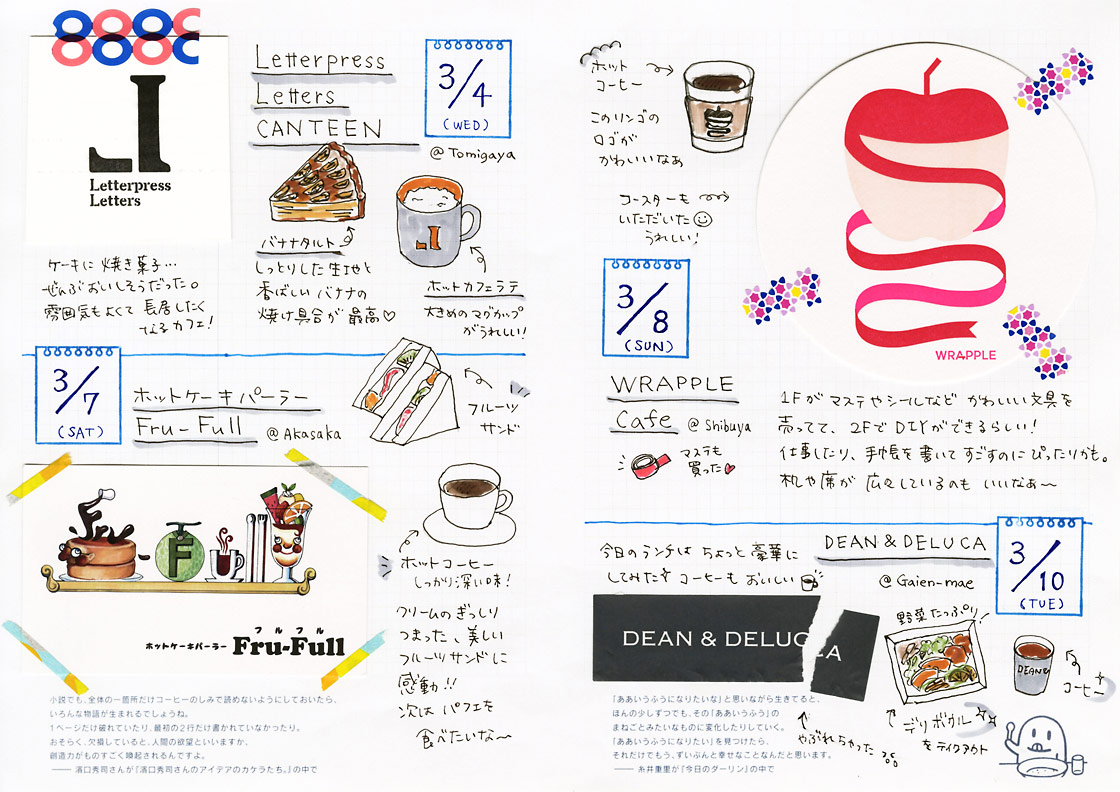 Letterpress
Letters
Letterpress
Letters
CANTEEN
3/4
(WED)
@ Tomigaya
バナナタルト
しっとりした生地と
香ばしいバナナの
焼け具合が最高♡
ホットカフェラテ
大きめのマグカップ
がうれしい!
ケーキに焼き菓子…
ぜんぶおいしそうだった。
雰囲気もよくて長居したく
なるカフェ!
3/7
(SAT)
ホットケーキパーラー
Fru-Full
@ Akasaka
フルーツ
サンド
F
フルフル
ホットケーキパーラー Fru-Full
ホットコーヒー
しっかり深い味!
クリームのぎっしり
つまった、美しい
フルーツサンドに
感動!!
次はパフェを
食べたいな〜
小説でも、全体の一箇所だけコーヒーのしみで読めないようにしておいたら、
いろんな物語が生まれるでしょうね。
1ページだけ破れていたり、最初の2行だけ書かれていなかったり。
おそらく、欠損していると、人間の欲望といいますか、
創造力がものすごく喚起されるんですよ。
―― 濱口秀司さんが『濱口秀司さんのアイデアのカケラたち。』の中で
ホット
コーヒー
このリンゴの
ロゴが
かわいいなぁ
コースターも
いただいた☺
うれしい!
WRAPPLE
3/8
(SUN)
WRAPPLE
Cafe
@ Shibuya
マステも
買った♥
1Fがマステやシールなどかわいい文具を
売ってて、2FでDIYができるらしい!
仕事したり、手帳を書いてすごすのにぴったりかも。
机や席が広々しているのもいいなぁ〜
今日のランチはちょっと豪華に
してみた コーヒーもおいしい
DEAN & DELUCA
@ Gaien-mae
3/10
(TUE)
DEAN & DELUCA
野菜たっぷり!
DEAN &
コーヒー
デリボウル
をテイクアウト
やぶれちゃった
「ああいうふうになりたいな」と思いながら生きてると、
ほんの少しずつでも、その「ああいうふう」の
まねごとみたいなものに変化したりしていく。
「ああいうふうになりたい」を見つけたら、
それだけでもう、ずいぶんと幸せなことなんだと思います。
―― 糸井重里が『今日のダーリン』の中で